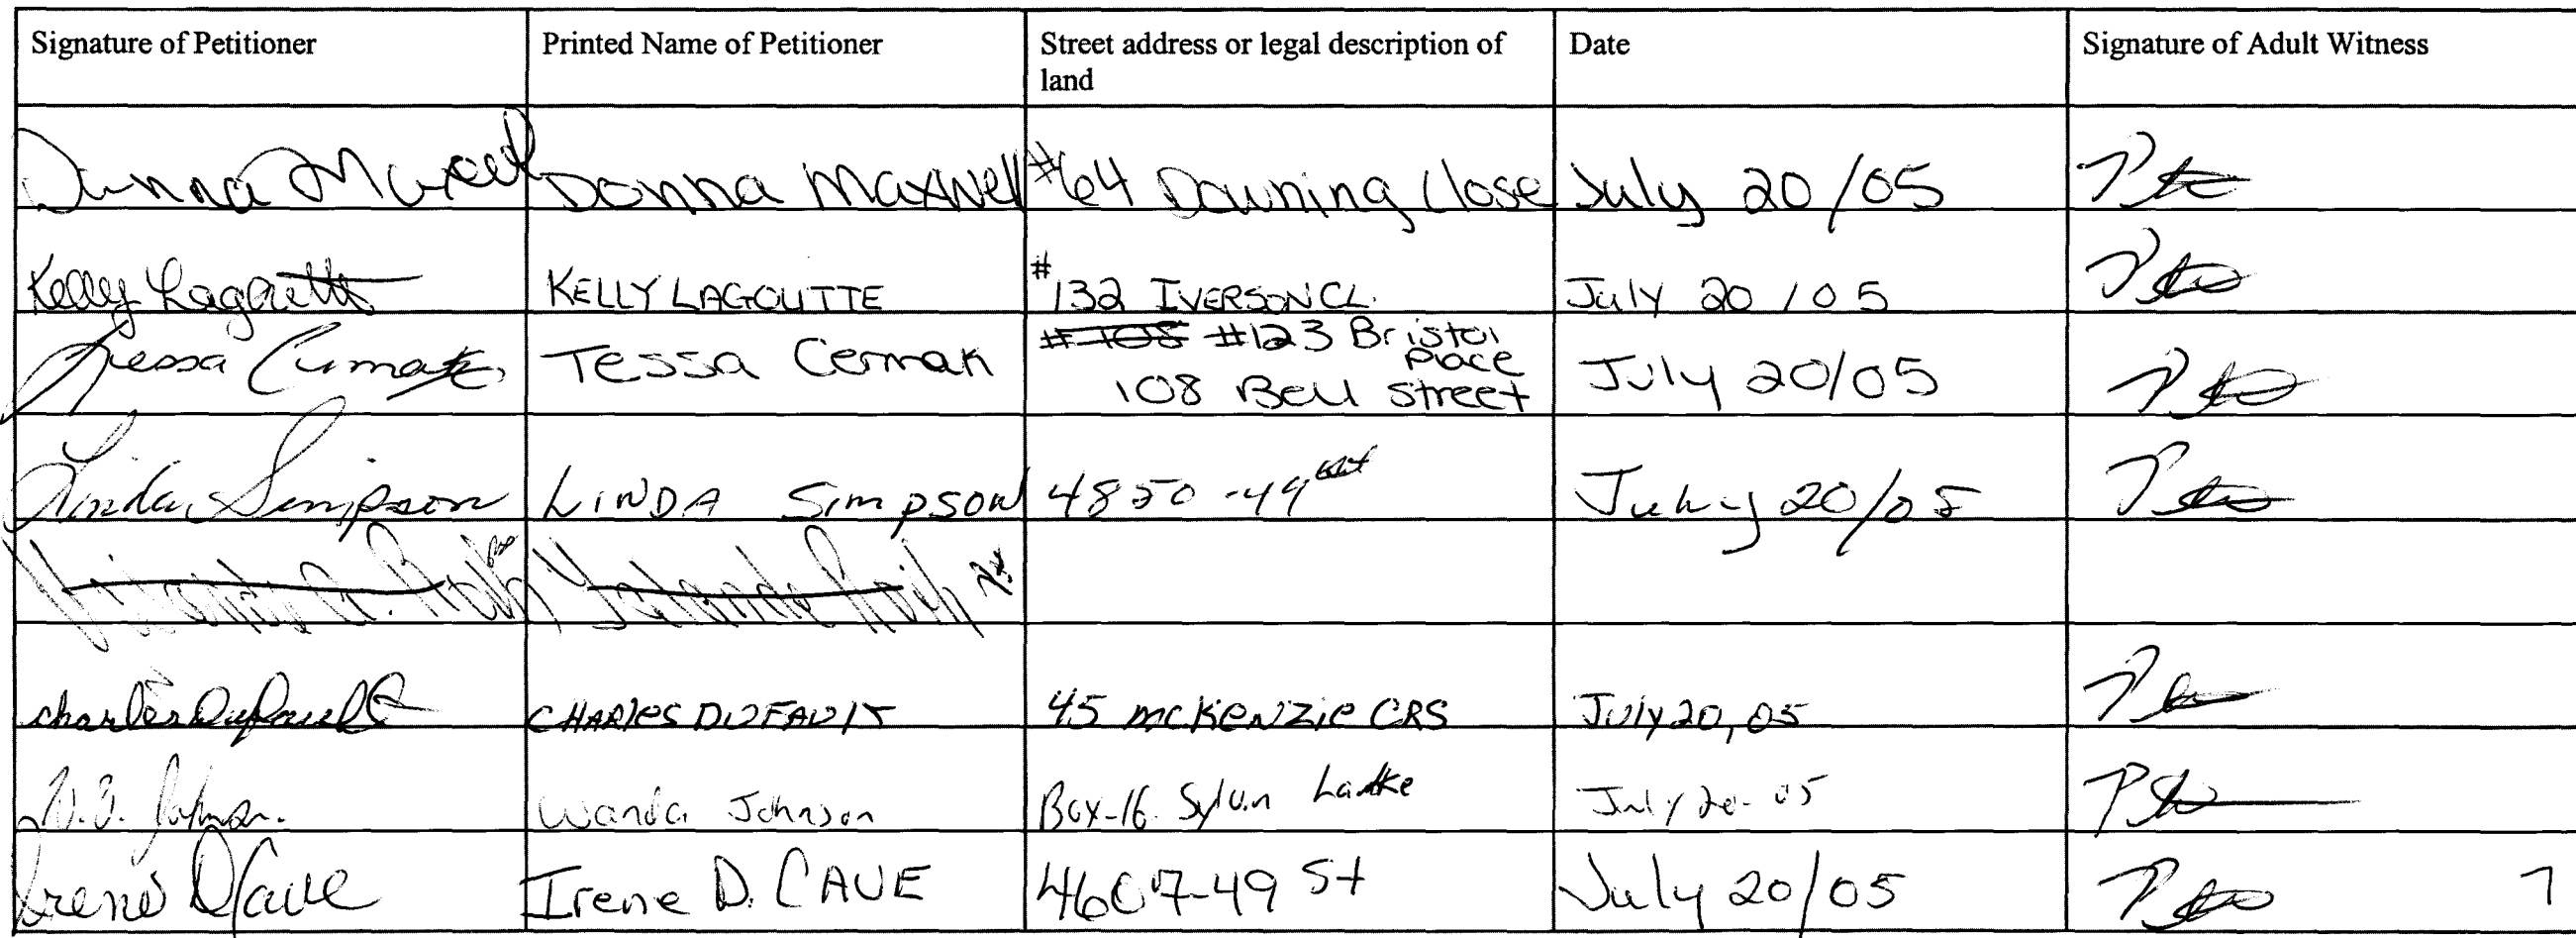 Signature of Petitioner
Printed Name of Petitioner
Street address or legal description of
land
Date
Signature of Adult Witness
Donna Maxwell
Donna Maxwell
#64 Downing Close
July 20/05
Kelly Lagoutte
KELLY LAGOUTTE
#132 IVERSON CL.
July 20/05
Tessa Cermak
Tessa Cermak
#108 #123 Bristol
Place
108 Bell Street
July 20/05
Linda Simpson
LINDA SIMPSON
4850-49
July 20/05
Charles Dufault
CHARlES DUFAUlT
45 McKeNZie CRS
July 20, 05
Johnson.
Wanda Johnson
Box-16 Sylvan
July 20-05
Irene D Cave
Irene D. CAVE
4607-49 St
July 20/05
7